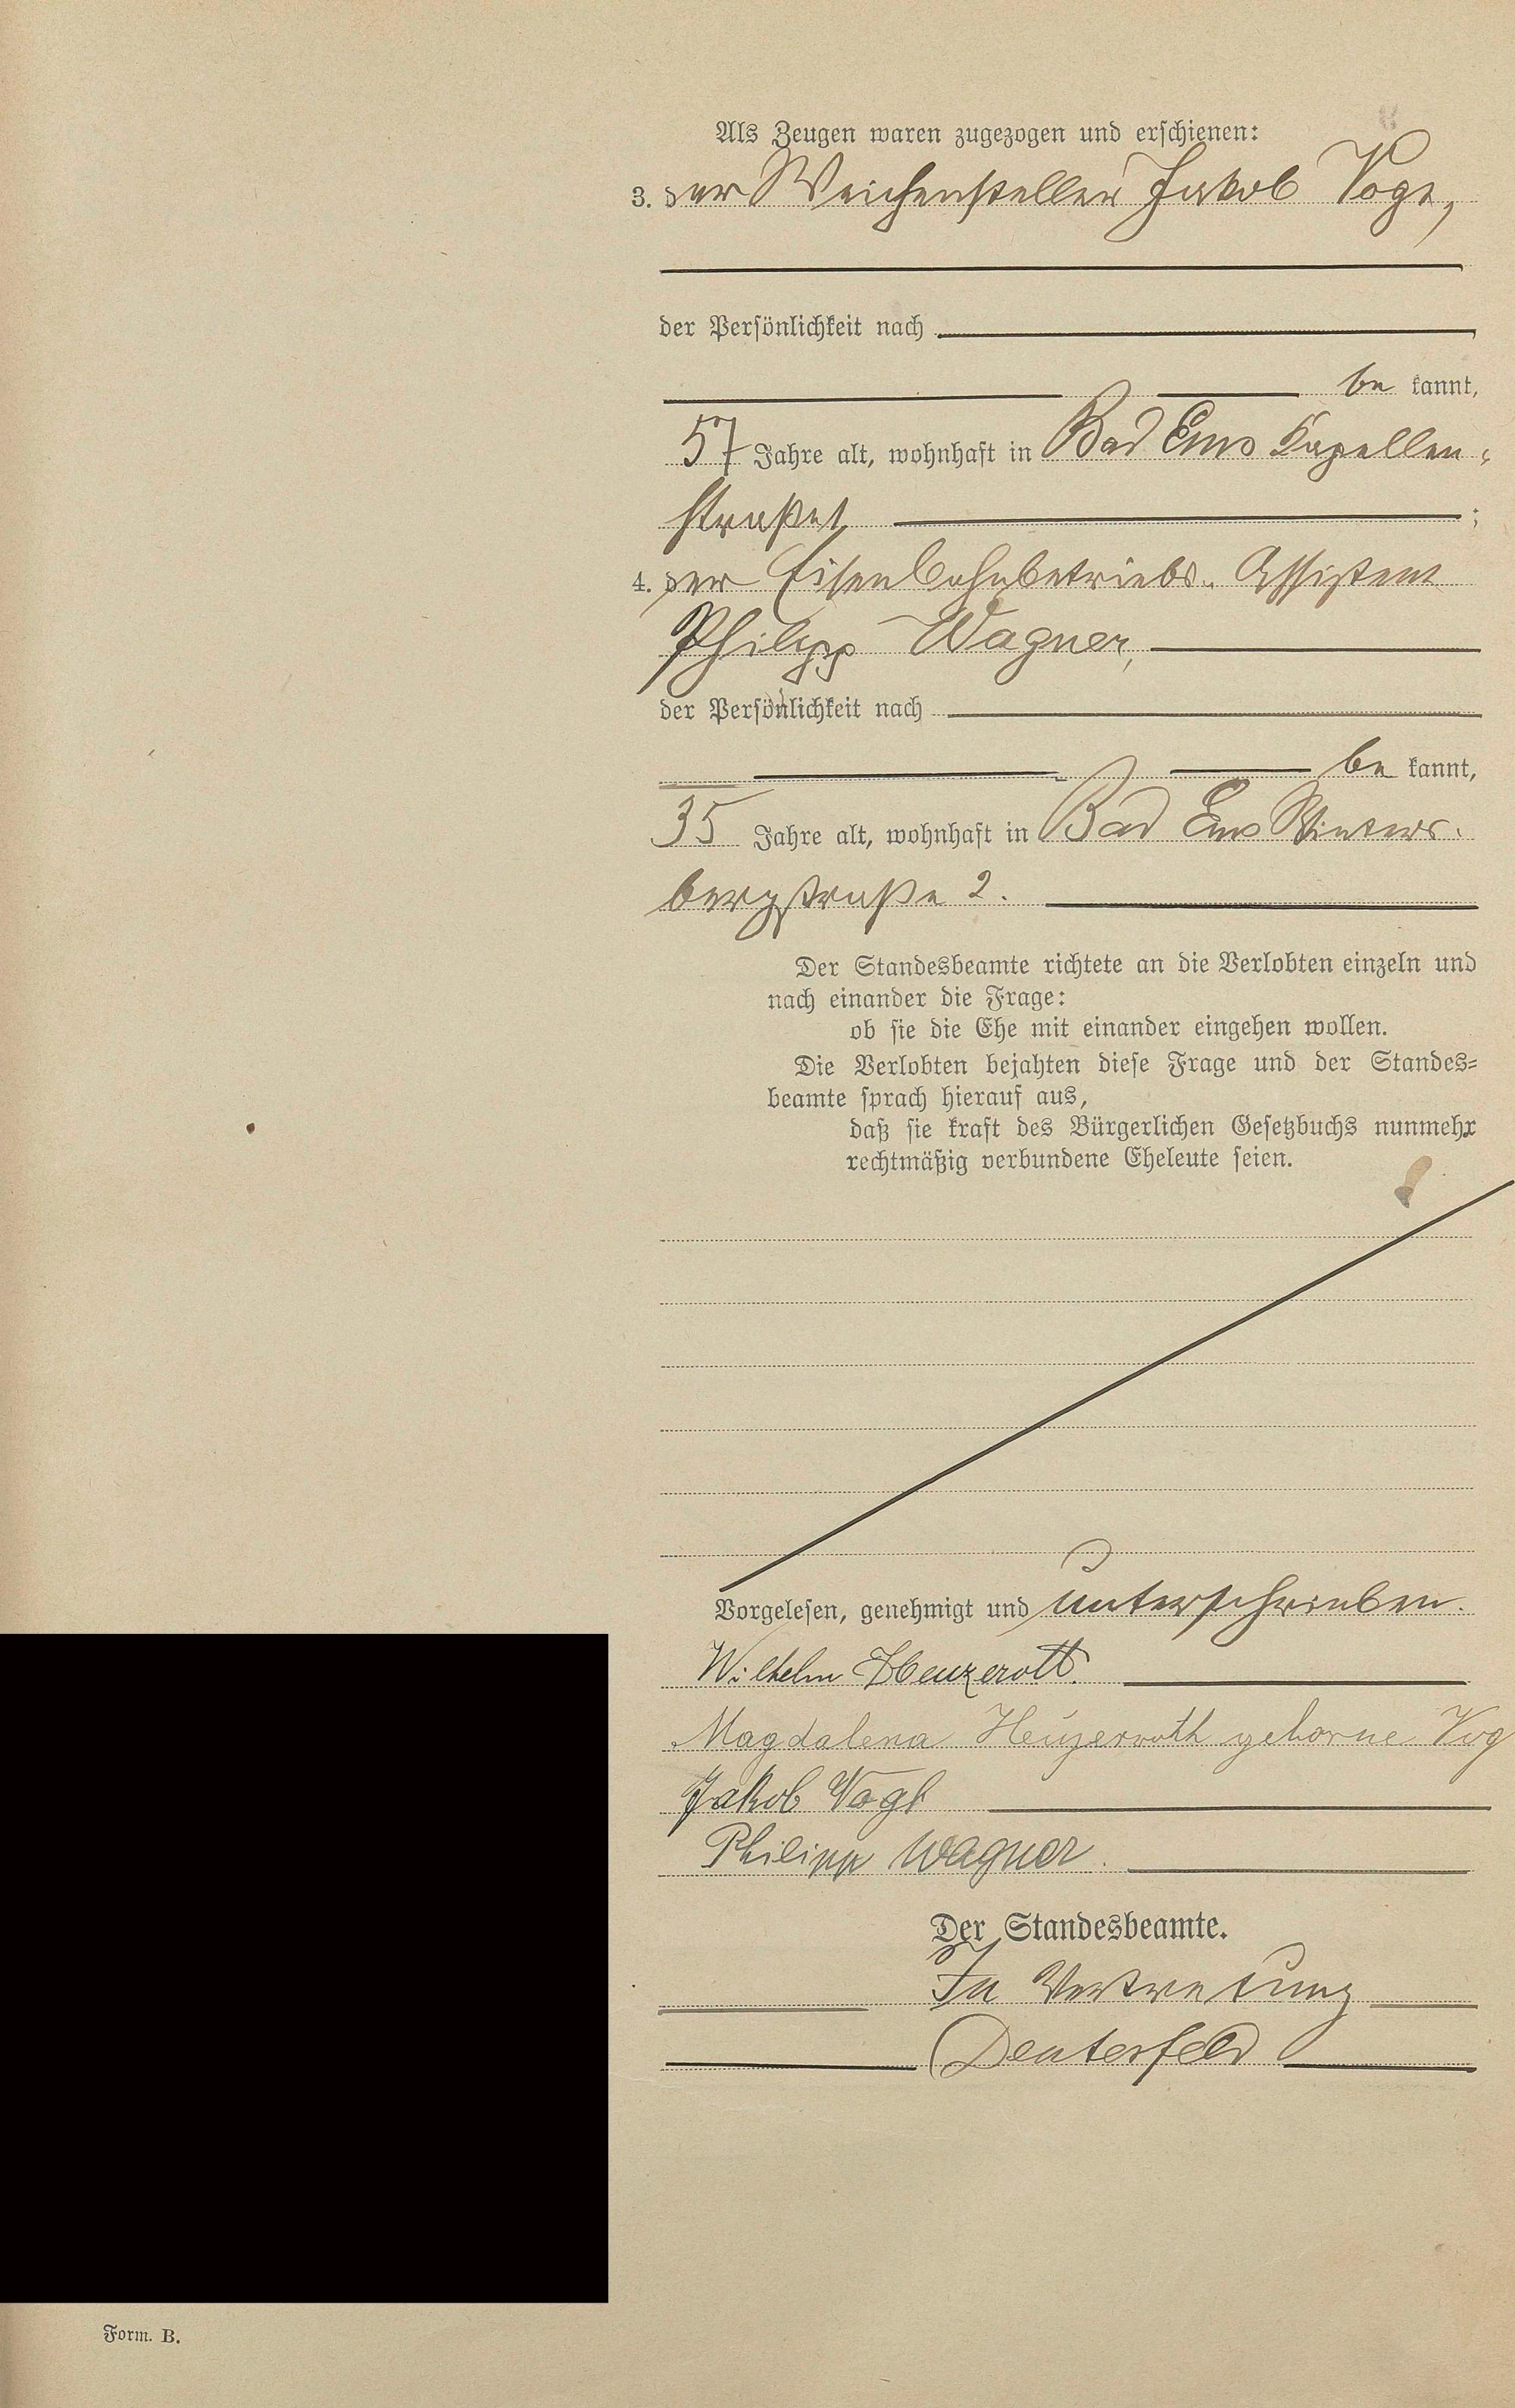 Als Zeugen waren zugezogen und erschienen:
3. der Weichensteller Jakob Vogt,
der Persönlichkeit nach
be kannt,
57 Jahre alt, wohnhaft in Bad Ems Kapellen-
straße 1 ;
4. der Eisenbahnbetriebs-Assistent
Philipp Wagner,
der Persönlichkeit nach
be kannt,
35 Jahre alt, wohnhaft in Bad Ems Winters-
bergstraße 2.
Der Standesbeamte richtete an die Verlobten einzeln und
nach einander die Frage:
ob sie die Ehe mit einander eingehen wollen.
Die Verlobten bejahten diese Frage und der Standes-
beamte sprach hierauf aus,
daß sie kraft des Bürgerlichen Gesetzbuchs nunmehr
rechtmäßig verbundene Eheleute seien.
Vorgelesen, genehmigt und unterschrieben.
Wilhelm Heuzeroth.
Magdalena Heuzeroth geborne Vog
Jakob Vogt
Philipp Wagner.
Der Standesbeamte.
In Vertretung
Deuterfeld
Form. B.